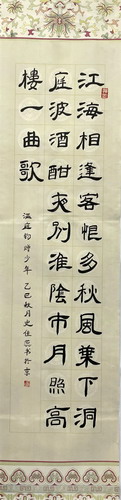 江海相逢客恨多秋風葉下洞
庭波酒酣夜別淮陰市月照高
樓一曲歌
温庭筠詩少年 乙巳秋月 書於京